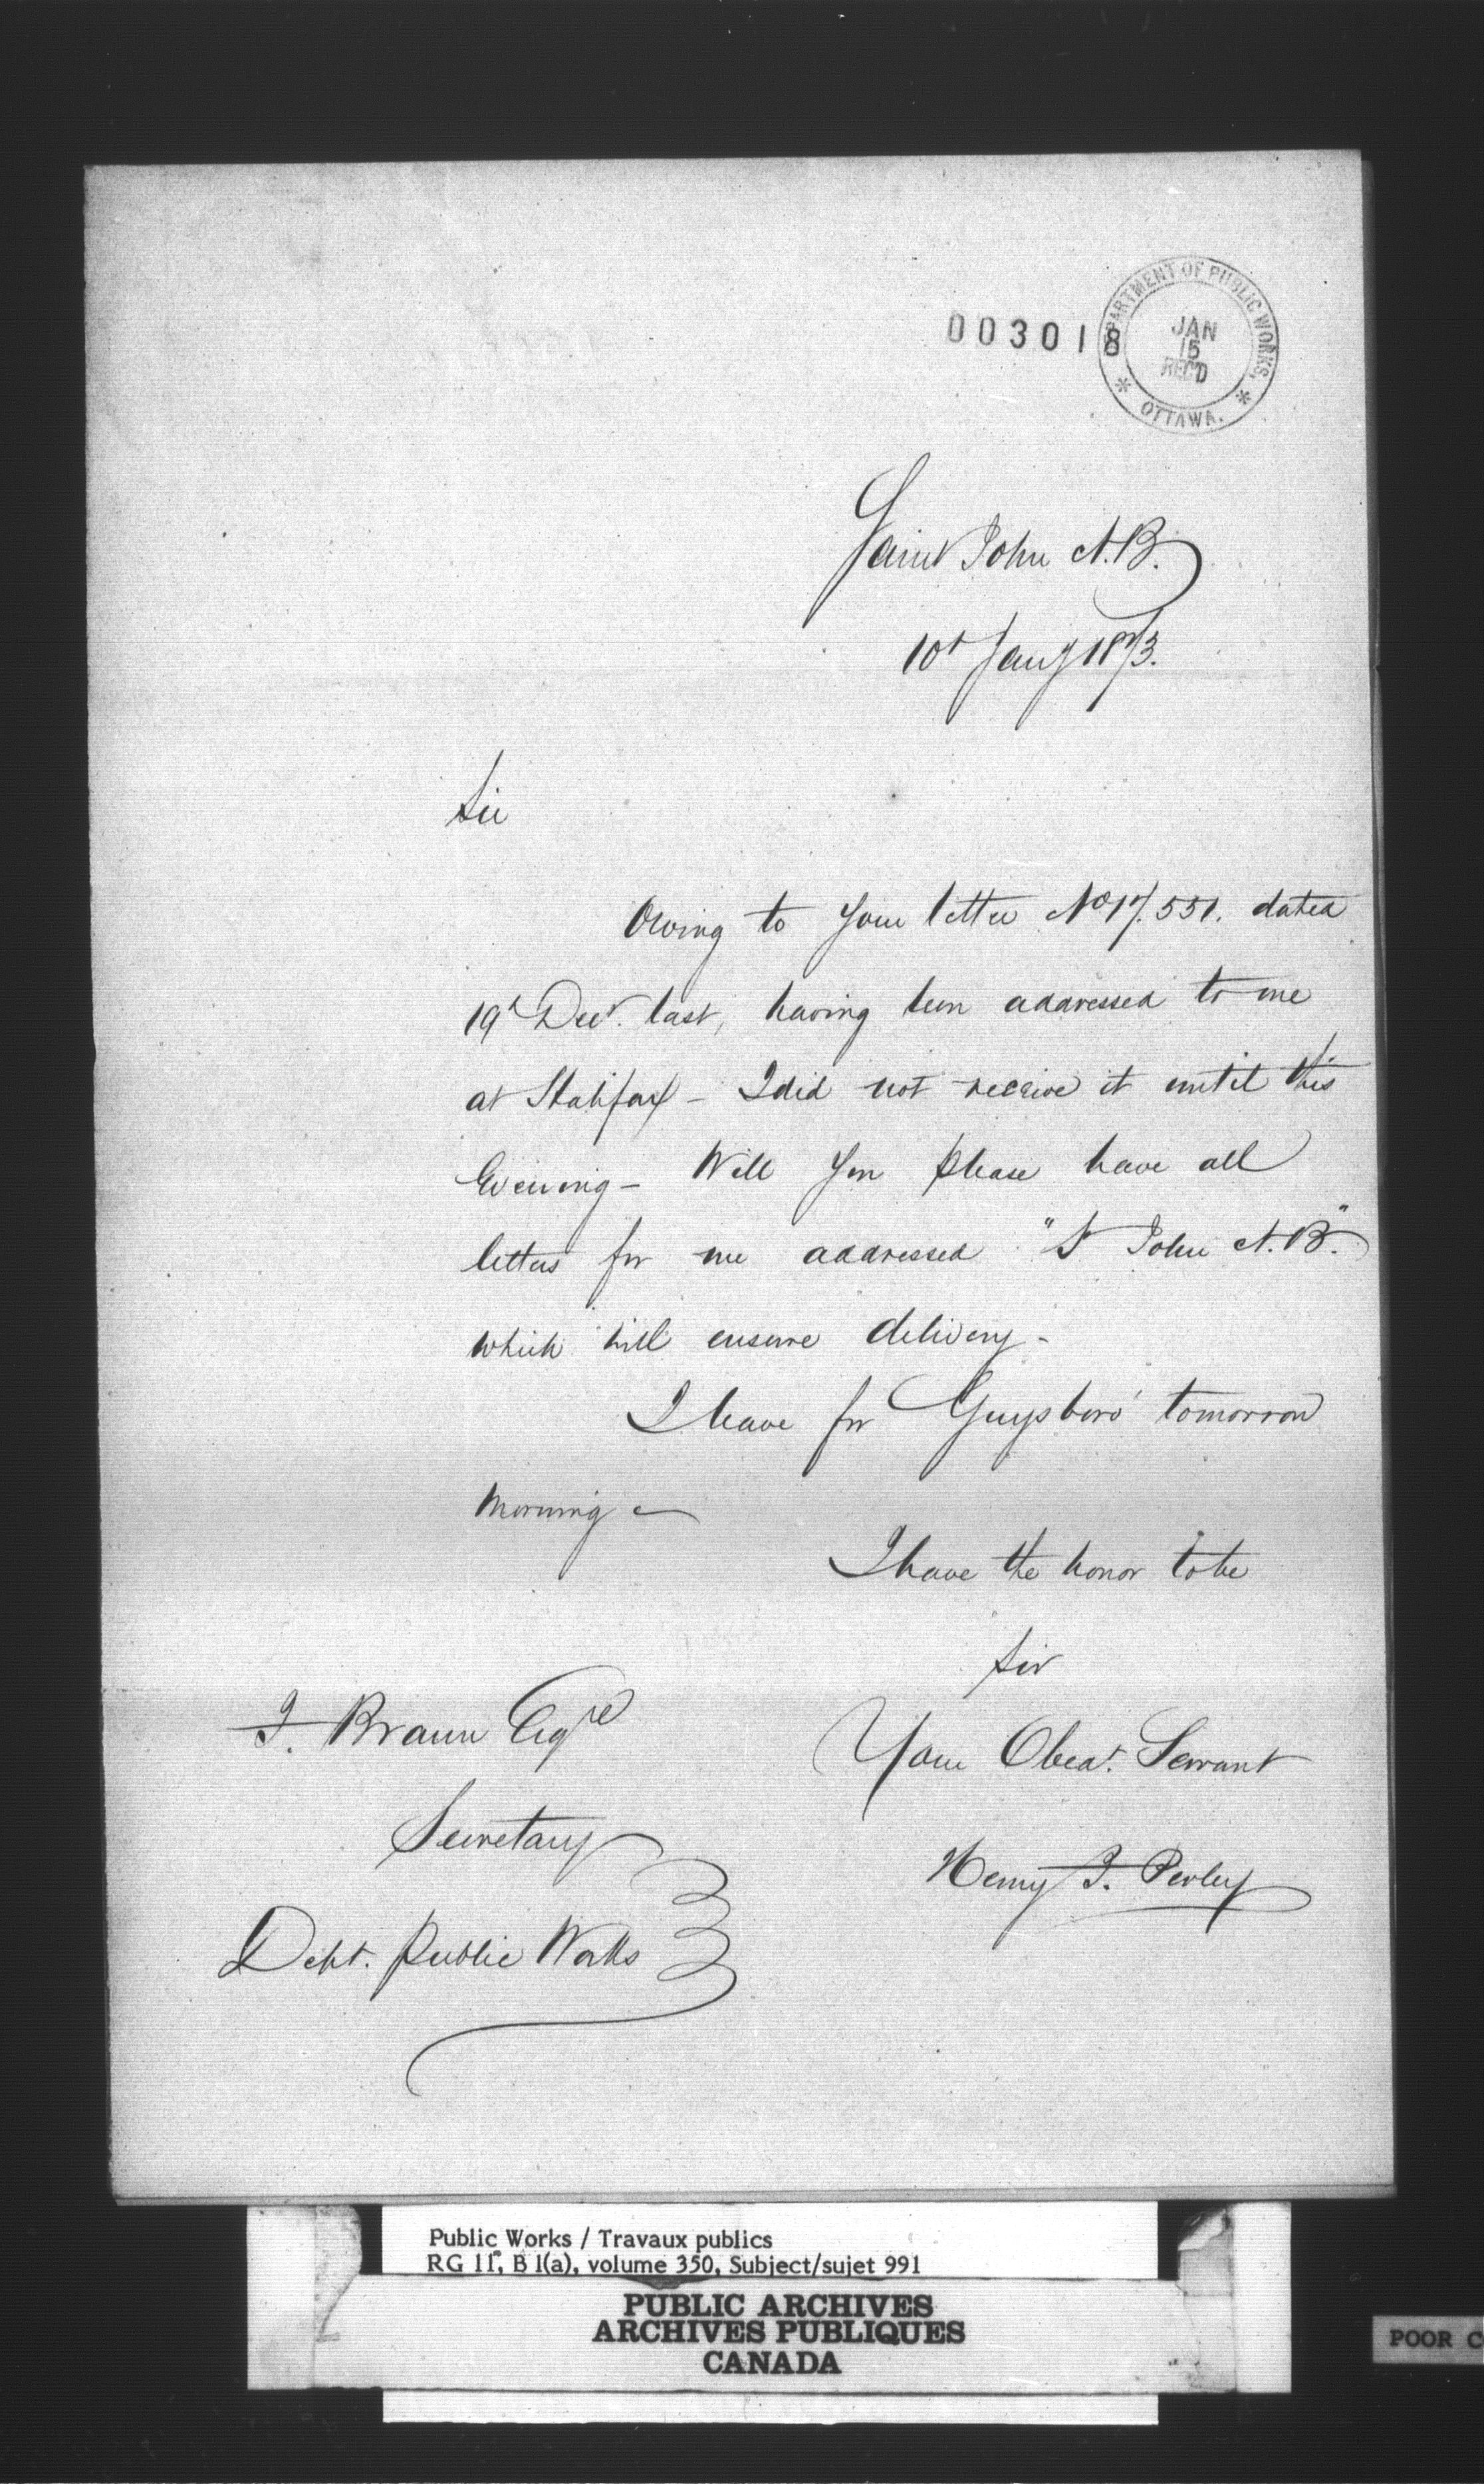 003018
DEPARTMENT OF PUBLIC WORKS,
JAN
15
REC'D
* OTTAWA. *
Saint John N.B.
10th Jany 1873.
Sir
Owing to your letter No 17.551. dated
19th Decr. last, having been addressed to me
at Halifax - I did not receive it until this
Evening - Will you please have all
letters for me addressed "St John N.B."
which will ensure delivery -
I leave for Guysboro' tomorrow
morning -
I have the honor to be
Sir
Your Obedt. Servant
Henry F. Perley
F. Braun Esqre
Secretary
Dept. Public Works
Public Works / Travaux publics
RG 11, B 1(a), volume 350, Subject/sujet 991
PUBLIC ARCHIVES
ARCHIVES PUBLIQUES
CANADA
POOR C